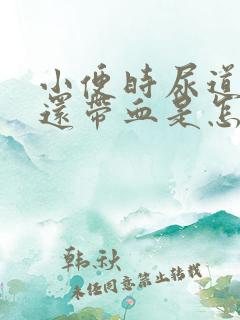 小便時尿道
還帶血是怎
韩秋
未经同意禁止转载